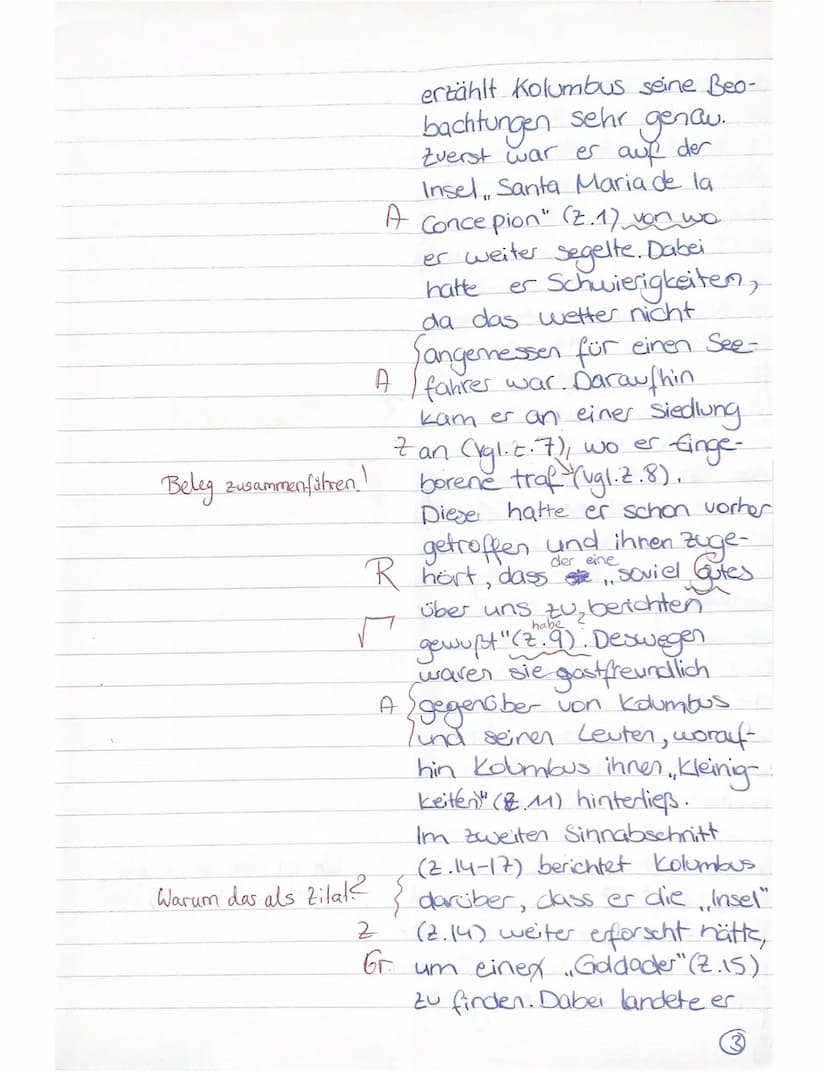 erzählt Kolumbus seine Beo-
bachtungen sehr genau.
Zuerst war er auf der
Insel „Santa Maria de la
A Concepion" (Z.1) von wo
er weiter segelte. Dabei
hatte er Schwierigkeiten,
da das Wetter nicht
angemessen für einen See-
A fahrer war. Daraufhin
kam er an einer Siedlung
Z an (vgl. Z. 7), wo er Einge-
Beleg zusammenführen! borene traf (vgl. Z. 8).
Diese hatte er schon vorher
getroffen und ihnen zuge-
der eine
R hört, dass „soviel Gutes
über uns zu berichten
habe
gewußt" (Z. 9). Deswegen
waren sie gastfreundlich
A gegenüber von Kolumbus
und seinen Leuten, worauf-
hin Kolumbus ihnen „Kleinig-
keiten" (Z. 11) hinterließ.
Im zweiten Sinnabschnitt
(Z. 14-17) berichtet Kolumbus
Warum das als Zitat? darüber, dass er die „Insel"
Z (Z. 14) weiter erforscht hätte,
Gr. um einer „Goldader" (Z. 15)
zu finden. Dabei landete er
3